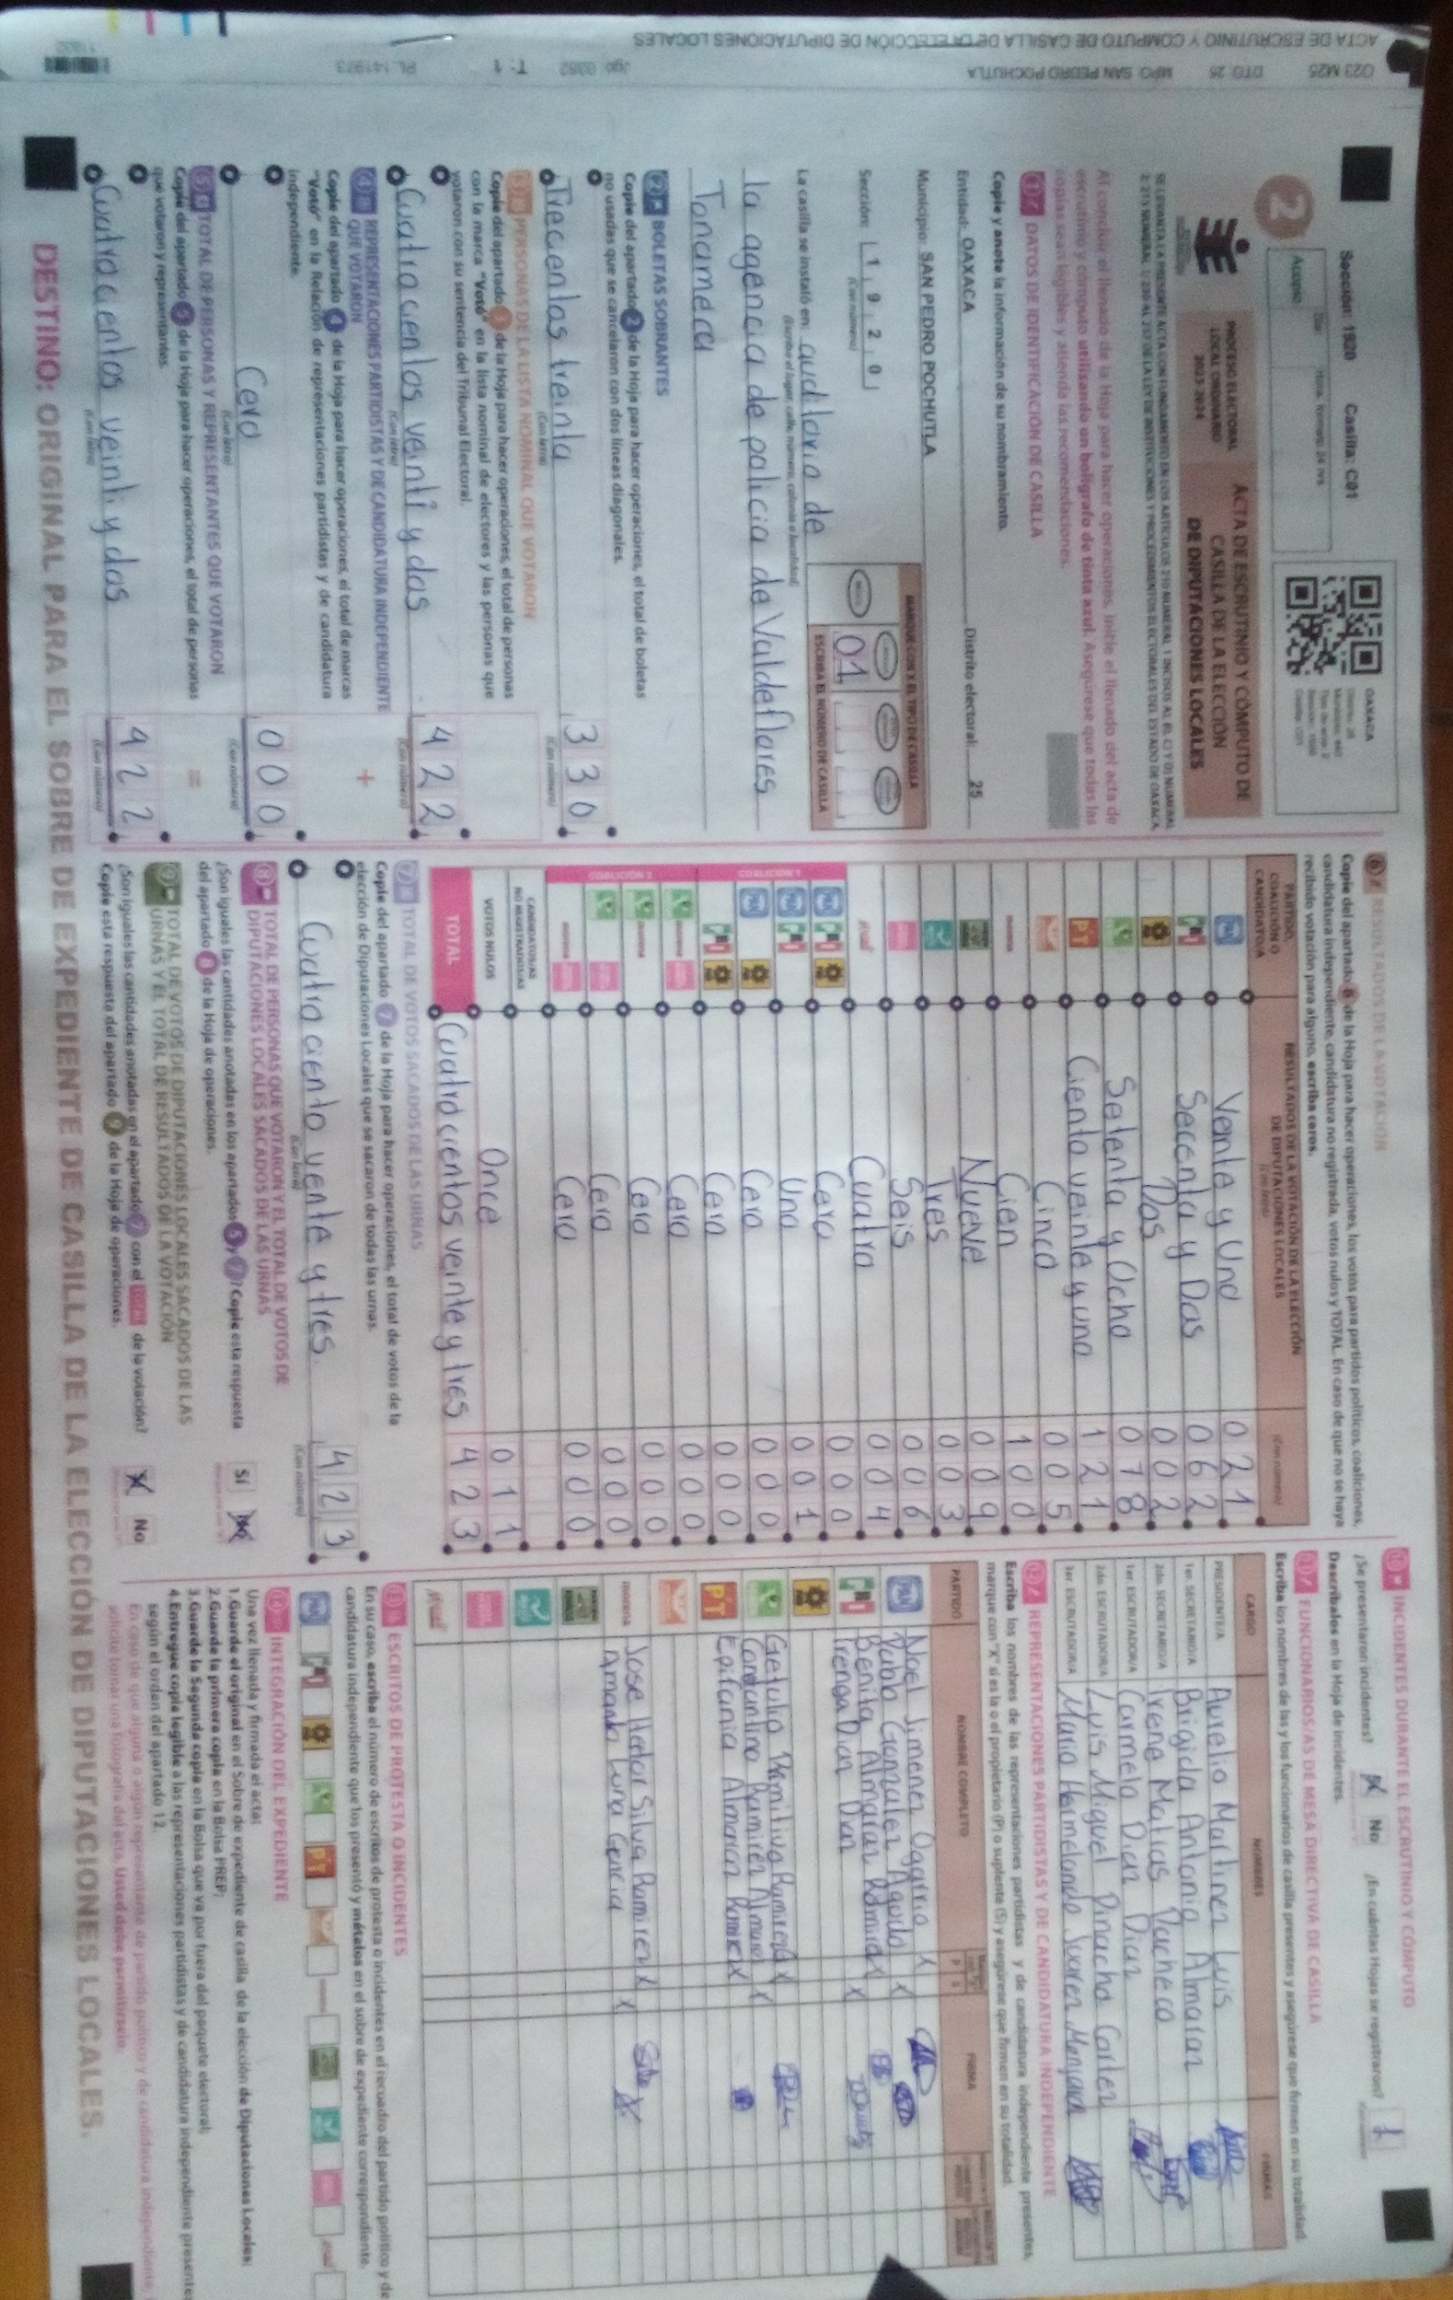 ACTA DE ESCRUTINIO Y CÓMPUTO DE CASILLA DE LA ELECCIÓN DE DIPUTACIONES LOCALES
023 M25 DTO: 25 MPIO: SAN PEDRO POCHUTLA
T: 1
PL: 141973
Sección: 1920 Casilla: C01
2
Acopio:
PROCESO ELECTORAL
LOCAL ORDINARIO
2023-2024
ACTA DE ESCRUTINIO Y CÓMPUTO DE
CASILLA DE LA ELECCIÓN
DE DIPUTACIONES LOCALES
OAXACA
Al concluir el llenado de la Hoja para hacer operaciones, inicie el llenado del acta de
escrutinio y cómputo utilizando un bolígrafo de tinta azul. Asegúrese que todas las
copias sean legibles y atienda las recomendaciones.
1 DATOS DE IDENTIFICACIÓN DE CASILLA
Copie y anote la información de su nombramiento.
Entidad: OAXACA Distrito electoral: 25
Municipio: SAN PEDRO POCHUTLA
Sección: 1 9 2 0
(Con número)
MARQUE CON X EL TIPO DE CASILLA
01
ESCRIBA EL NÚMERO DE CASILLA
La casilla se instaló en: auditorio de
la agencia de policia de Valdeflores
Tonameca
2 BOLETAS SOBRANTES
Copie del apartado 2 de la Hoja para hacer operaciones, el total de boletas
no usadas que se cancelaron con dos líneas diagonales.
Trecentos treinta 330
(Con letra) (Con número)
3 PERSONAS DE LA LISTA NOMINAL QUE VOTARON
Copie del apartado 3 de la Hoja para hacer operaciones, el total de personas
con la marca "Votó" en la lista nominal de electores y las personas que
votaron con su sentencia del Tribunal Electoral.
Cuatrocientos veinti y dos 422
(Con letra) (Con número)
4 REPRESENTACIONES PARTIDISTAS Y DE CANDIDATURA INDEPENDIENTE
QUE VOTARON
Copie del apartado 4 de la Hoja para hacer operaciones, el total de marcas
"Votó" en la Relación de representaciones partidistas y de candidatura
independiente.
+
Cero 000
(Con letra) (Con número)
5 TOTAL DE PERSONAS Y REPRESENTANTES QUE VOTARON
Copie del apartado 5 de la Hoja para hacer operaciones, el total de personas
que votaron y representantes.
=
Cuatrocientos veinti y dos 422
(Con letra) (Con número)
6 RESULTADOS DE LA VOTACIÓN
Copie del apartado 6 de la Hoja para hacer operaciones, los votos para partidos políticos, coaliciones,
candidatura independiente, candidatura no registrada, votos nulos y TOTAL. En caso de que no se haya
recibido votación para alguno, escriba ceros.
PARTIDO, COALICIÓN O CANDIDATO/A
RESULTADOS DE LA VOTACIÓN DE LA ELECCIÓN
DE DIPUTACIONES LOCALES
(Con letra) (Con número)
PAN Veinte y Uno 021
PRI Secenta y Dos 062
PRD Dos 002
Setenta y Ocho 078
PT Ciento veinte y uno 121
Cinco 005
morena Cien 100
Nueve 009
Tres 003
Seis 006
Cuatro 004
COALICIÓN 1
Cero 000
Uno 001
Cero 000
Cero 000
COALICIÓN 2
Cero 000
Cero 000
Cero 000
Cero 000
CANDIDATOS/AS
NO REGISTRADOS/AS
VOTOS NULOS Once 011
TOTAL Cuatro cientos veinte y tres 423
7 TOTAL DE VOTOS SACADOS DE LAS URNAS
Copie del apartado 7 de la Hoja para hacer operaciones, el total de votos de la
elección de Diputaciones Locales que se sacaron de todas las urnas.
Cuatro ciento vente y tres 423
(Con letra) (Con número)
8 TOTAL DE PERSONAS QUE VOTARON Y EL TOTAL DE VOTOS DE
DIPUTACIONES LOCALES SACADOS DE LAS URNAS
¿Son iguales las cantidades anotadas en los apartados 5 y 7? Copie esta respuesta
del apartado 8 de la Hoja de operaciones.
Sí
9 TOTAL DE VOTOS DE DIPUTACIONES LOCALES SACADOS DE LAS
URNAS Y EL TOTAL DE RESULTADOS DE LA VOTACIÓN
¿Son iguales las cantidades anotadas en el apartado 7 con el TOTAL de la votación?
Copie esta respuesta del apartado 9 de la Hoja de operaciones.
No
10 INCIDENTES DURANTE EL ESCRUTINIO Y CÓMPUTO
¿Se presentaron incidentes? No ¿En cuántas Hojas se registraron? 1
Descríbalos en la Hoja de incidentes.
11 FUNCIONARIOS/AS DE MESA DIRECTIVA DE CASILLA
Escriba los nombres de las y los funcionarios de casilla presentes y asegúrese que firmen en su totalidad.
CARGO NOMBRES FIRMAS
PRESIDENTE/A Aurelio Martinez Luis
1er. SECRETARIO/A Brigida Antonio Almaraz
2do. SECRETARIO/A Irene Matias Pacheco
1er. ESCRUTADOR/A Carmela Diaz Diaz
2do. ESCRUTADOR/A Luis Miguel Pinacho Cortez
3er. ESCRUTADOR/A Maria Hermelinda Juarez Menjura
12 REPRESENTACIONES PARTIDISTAS Y DE CANDIDATURA INDEPENDIENTE
Escriba los nombres de las representaciones partidistas y de candidatura independiente presentes,
marque con "X" si es la o el propietario (P) o suplente (S) y asegúrese que firmen en su totalidad.
PARTIDO NOMBRE COMPLETO FIRMA
PAN Noel Jimenez Ogarrio x
Gonzalez Agudo x
PRI Benita Almaraz x
Diaz Diaz x
PRD
Getulio Ramirez x
Constantino Ramirez Almaraz x
PT Epifania Almaraz Ramirez x
morena Jose Hector Silva Ramirez x
Amanda Luna Garcia x
13 ESCRITOS DE PROTESTA O INCIDENTES
En su caso, escriba el número de escritos de protesta o incidentes en el recuadro del partido político y de
candidatura independiente que los presentó y métalos en el sobre de expediente correspondiente.
14 INTEGRACIÓN DEL EXPEDIENTE
Una vez llenada y firmada el acta:
1. Guarde el original en el Sobre de expediente de casilla de la elección de Diputaciones Locales;
2. Guarde la primera copia en la Bolsa PREP;
3. Guarde la Segunda copia en la Bolsa que va por fuera del paquete electoral;
4. Entregue copia legible a las representaciones partidistas y de candidatura independiente presentes
según el orden del apartado 12.
En caso de que alguna o algún representante de partido político y de candidatura independiente,
solicite tomar una fotografía del acta, Usted debe permitírselo.
DESTINO: ORIGINAL PARA EL SOBRE DE EXPEDIENTE DE CASILLA DE LA ELECCIÓN DE DIPUTACIONES LOCALES.